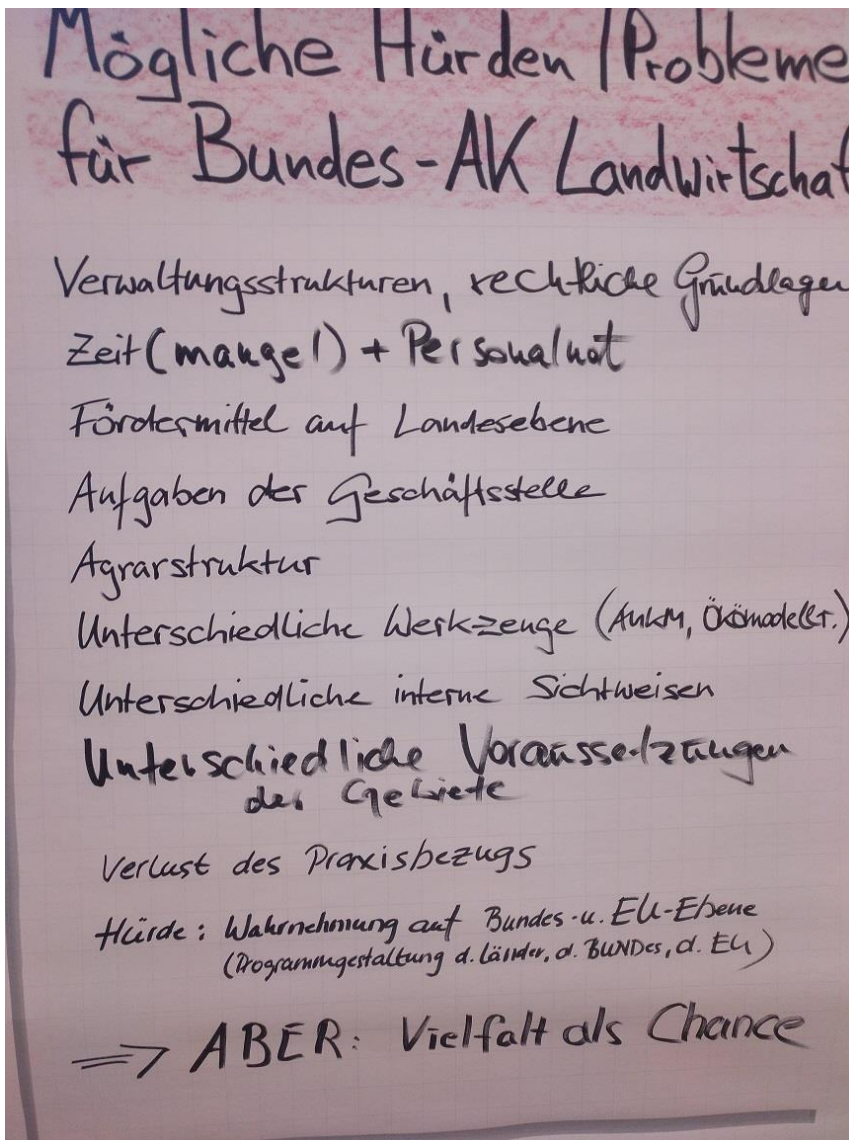 Mögliche Hürden / Probleme
für Bundes-AK Landwirtschaf
Verwaltungsstrukturen, rechtliche Grundlagen
Zeit(mangel) + Personalnot
Fördermittel auf Landesebene
Aufgaben der Geschäftsstelle
Agrarstruktur
Unterschiedliche Werkzeuge (AUKM, Ökomodellr.)
Unterschiedliche interne Sichtweisen
Unterschiedliche Voraussetzungen
der Gebiete
Verlust des Praxisbezugs
Hürde: Wahrnehmung auf Bundes-u. EU-Ebene
(Programmgestaltung d. Länder, d. BUNDes, d. EU)
=> ABER: Vielfalt als Chance